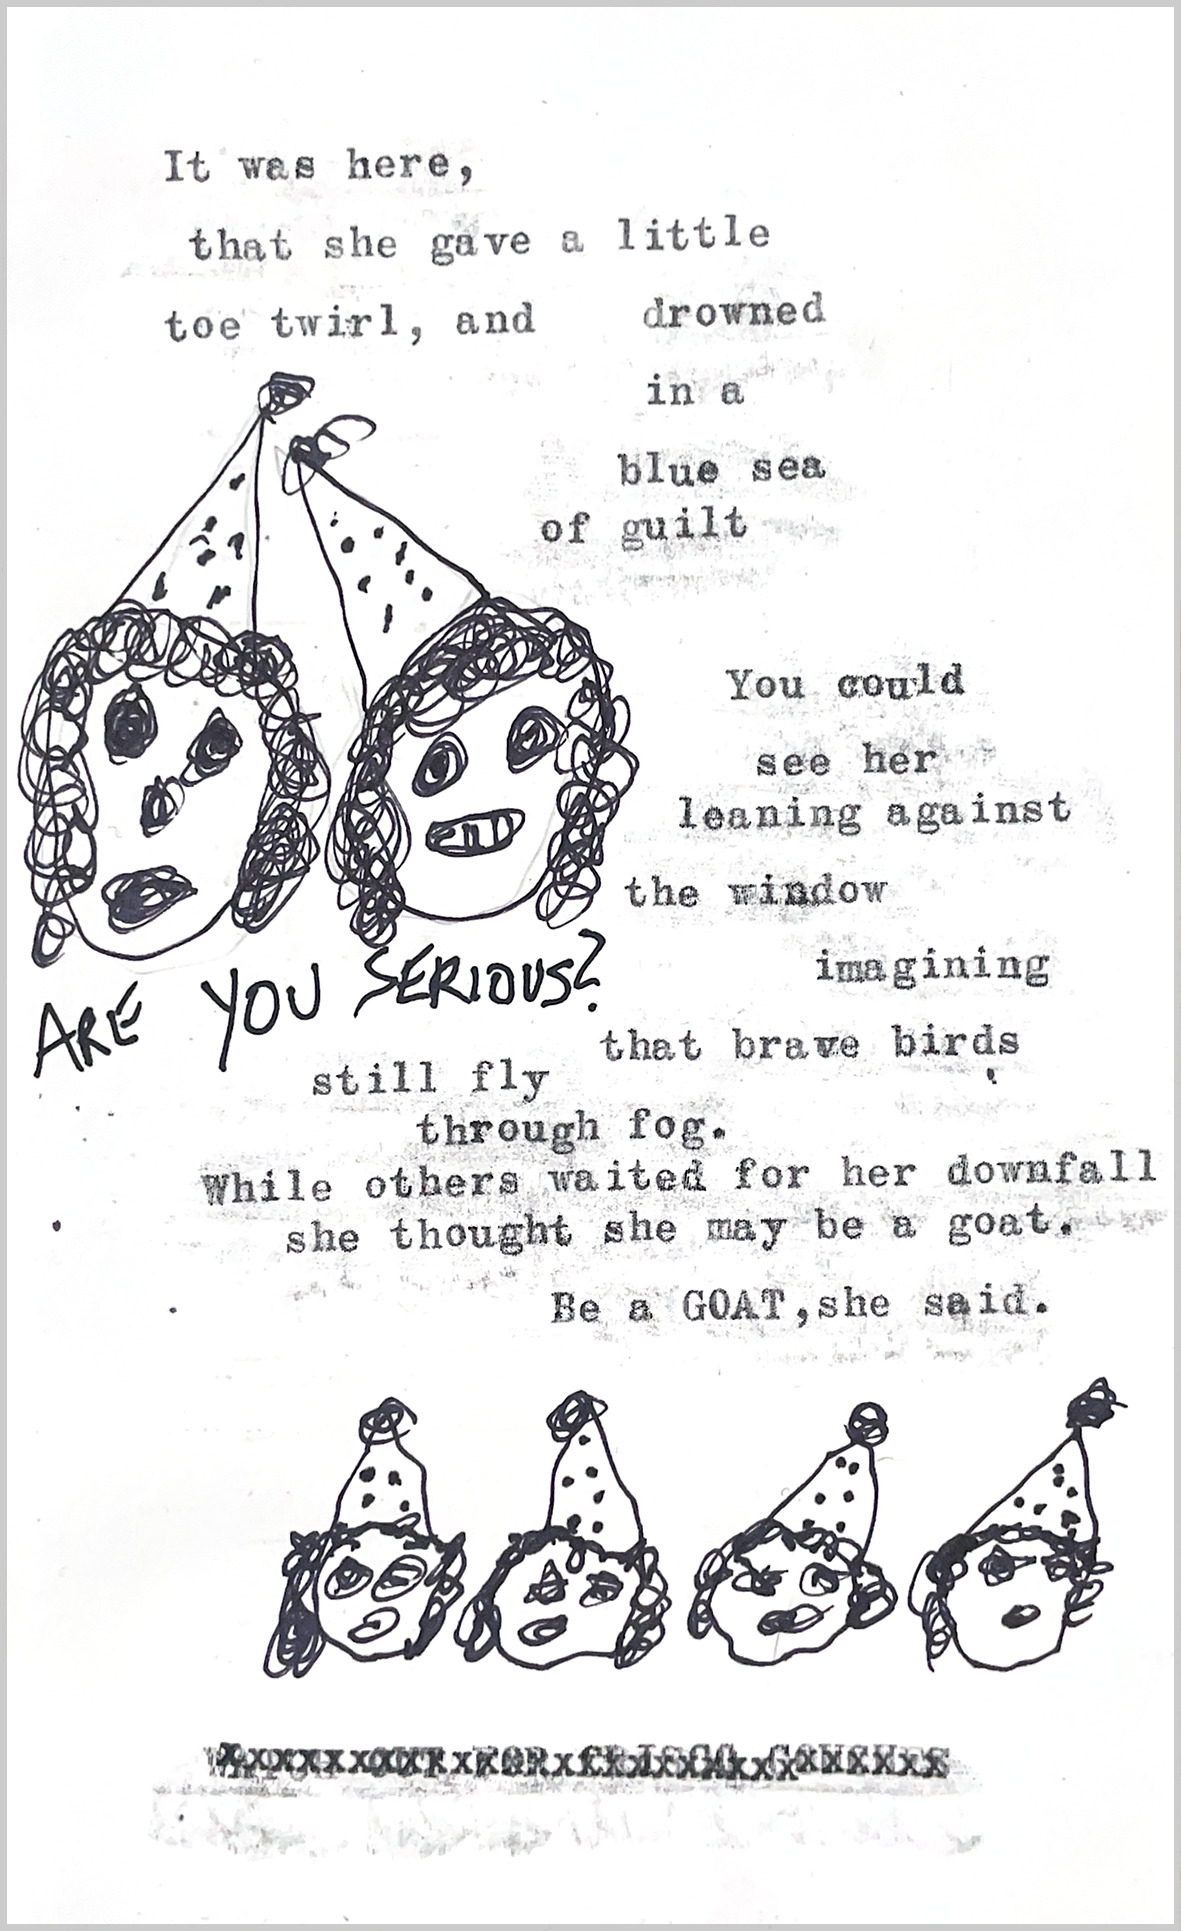 It was here,
that she gave a little
toe twirl, and drowned
in a
blue sea
of guilt
You could
see her
leaning against
the window
imagining
that brave birds
still fly
through fog.
While others waited for her downfall
she thought she may be a goat.
Be a GOAT,she said.
ARE YOU SERIOUS?